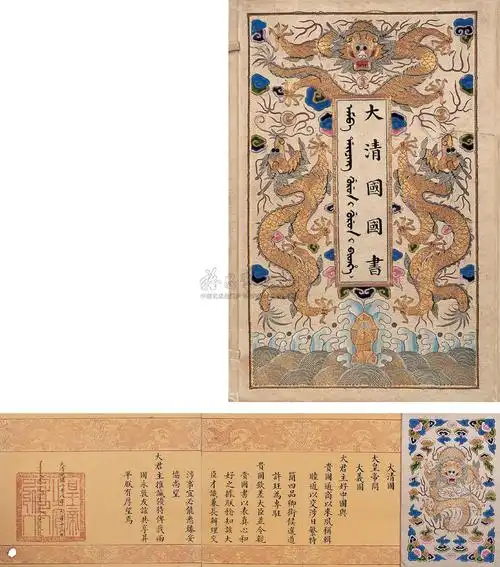 大清國國書
大清國
大皇帝問
大義國
大君主好中國與
貴國通商以來夙稱輯
睦近以交涉日繁特
簡四品卿銜候選道
許珏為專駐
貴國欽差大臣並令親
國書以表真心和
好之據朕稔知該大
臣才識兼長辦理交
涉事宜必能悉臻妥
協尚望
大君主推誠優待俾我兩
國永敦友誼共享昇
平朕有厚望焉